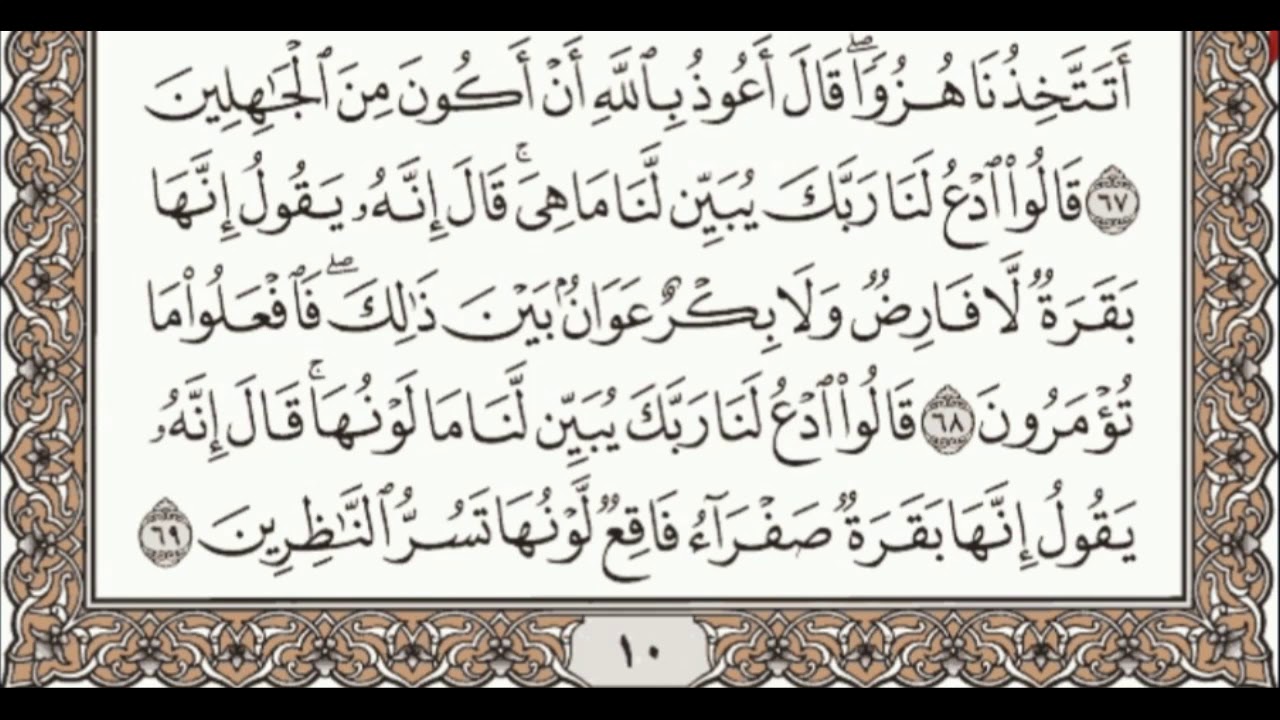 أَتَتَّخِذُنَا هُزُوًاۖ قَالَ أَعُوذُ بِٱللَّهِ أَنْ أَكُونَ مِنَ ٱلْجَٰهِلِينَ
٦٧ قَالُوا۟ ٱدْعُ لَنَا رَبَّكَ يُبَيِّن لَّنَا مَا هِىَۚ قَالَ إِنَّهُۥ يَقُولُ إِنَّهَا
بَقَرَةٌ لَّا فَارِضٌ وَلَا بِكْرٌ عَوَانٌۢ بَيْنَ ذَٰلِكَۖ فَٱفْعَلُوا۟ مَا
تُؤْمَرُونَ ٦٨ قَالُوا۟ ٱدْعُ لَنَا رَبَّكَ يُبَيِّن لَّنَا مَا لَوْنُهَاۚ قَالَ إِنَّهُۥ
يَقُولُ إِنَّهَا بَقَرَةٌ صَفْرَآءُ فَاقِعٌ لَّوْنُهَا تَسُرُّ ٱلنَّٰظِرِينَ ٦٩
١٠